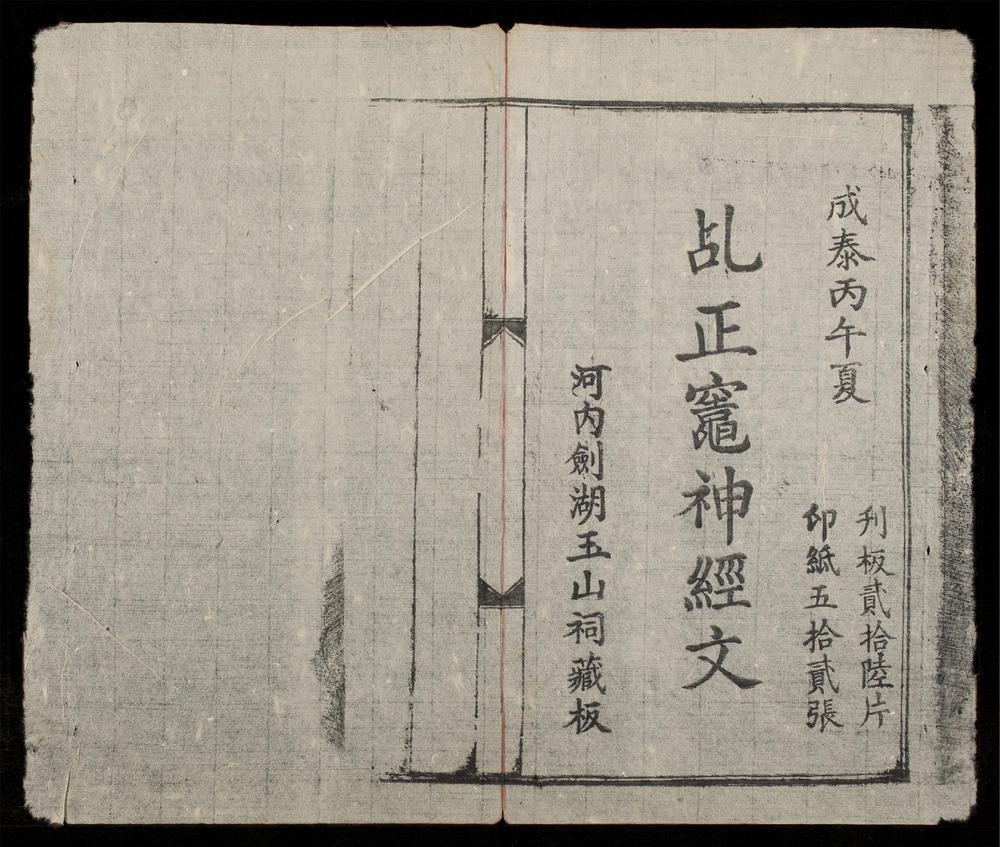 成泰丙午夏
刋板貳拾陸片
印紙五拾貳張
乩正竈神經文
河内劍湖玉山祠藏板